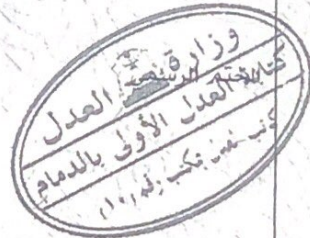 وزارة العدل
الختم الرسمي
كتابة العدل الأولى بالدمام
كاتب عدل مكتب رقم (١٠)